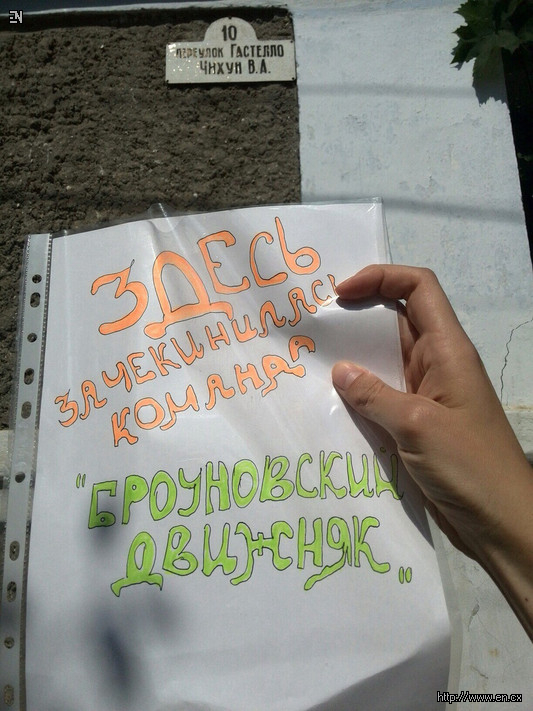 EN
10
ПЕРЕУЛОК ГАСТЕЛЛО
ЧИХУН В.А.
ЗДЕСЬ
ЗАЧЕКИНИЛАСЬ
КОМАНДА
"БРОУНОВСКИЙ
ДВИЖНЯК"
http://www.en.cx